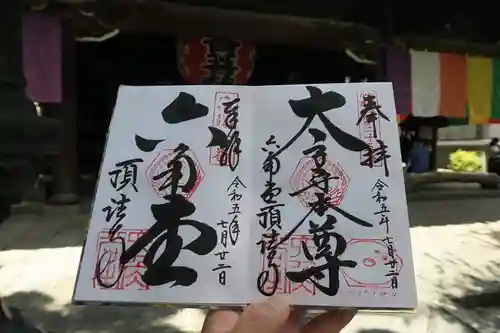 奉拝
令和五年七月廿二日
太子守本尊
六角堂頂法寺
奉拝
令和五年七月廿二日
六角堂
頂法寺